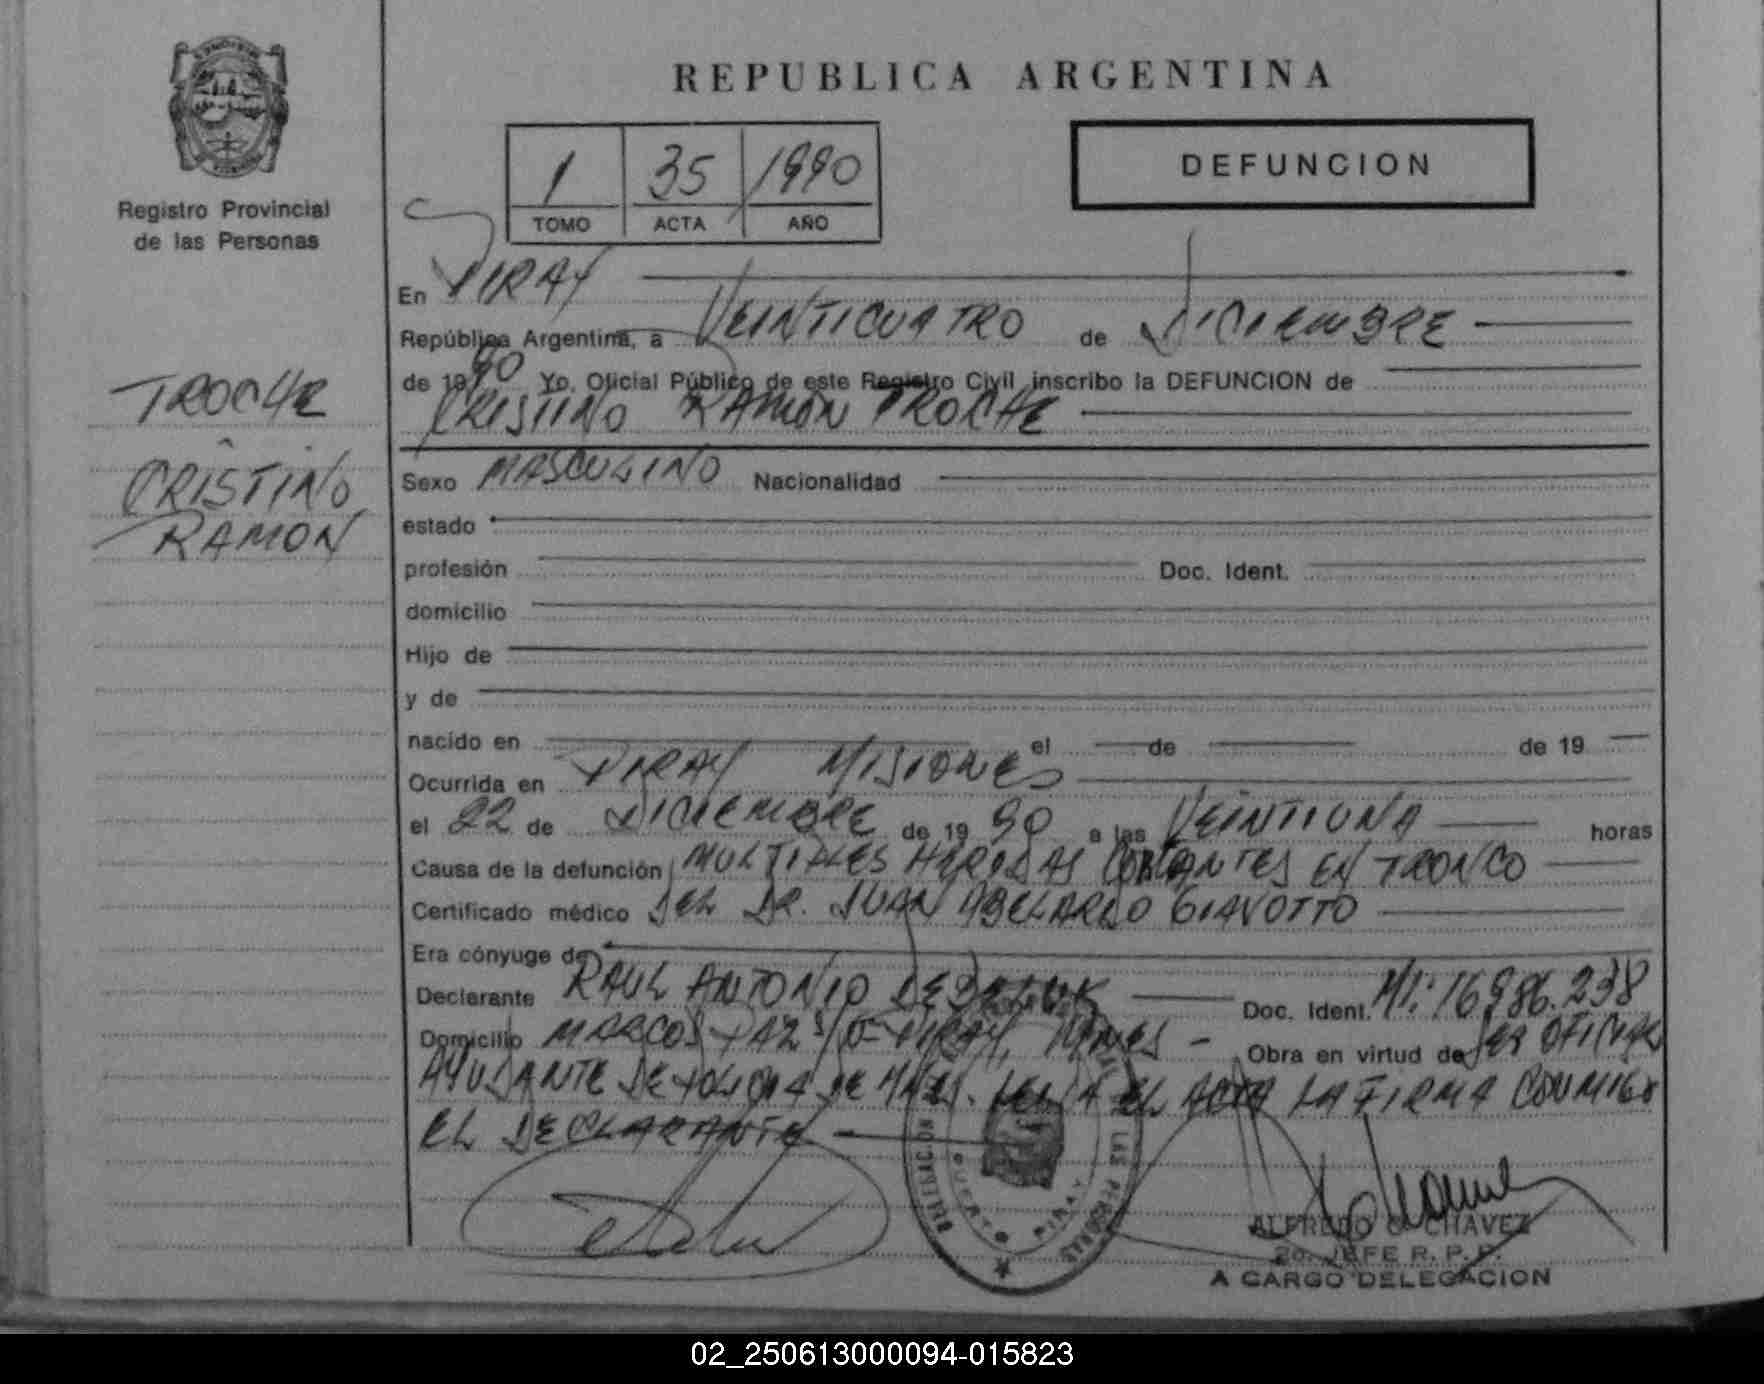 REPUBLICA ARGENTINA
1 35 1990
TOMO ACTA AÑO
DEFUNCION
Registro Provincial
de las Personas
TROCHE
CRISTINO
RAMON
En PIRAY
República Argentina, a VEINTICUATRO de DICIEMBRE
de 1990 Yo, Oficial Público de este Registro Civil inscribo la DEFUNCION de
CRISTINO RAMON TROCHE
Sexo MASCULINO Nacionalidad
estado
profesión Doc. Ident.
domicilio
Hijo de
y de
nacido en el de de 19
Ocurrida en PIRAY MISIONES
el 22 de DICIEMBRE de 19 90 a las VEINTIUNA horas
Causa de la defunción MULTIPLES HERIDAS CORTANTES EN TRONCO
Certificado médico DEL DR. JUAN ABELARDO GIAVOTTO
Era cónyuge de
Declarante RAUL ANTONIO Doc. Ident. MI: 16.986.238
Domicilio MARCOS PAZ S/Nº PIRAY, MNES - Obra en virtud de SER OFICIAL
AYUDANTE DE POLICIA DE MNES. LEIDA EL ACTA LA FIRMA CONMIGO
EL DECLARANTE
DELEGACION LAS PERSONAS
PUERTO PIRAY
ALFREDO C. CHAVEZ
2o. JEFE R. P. P.
A CARGO DELEGACION
02_250613000094-015823